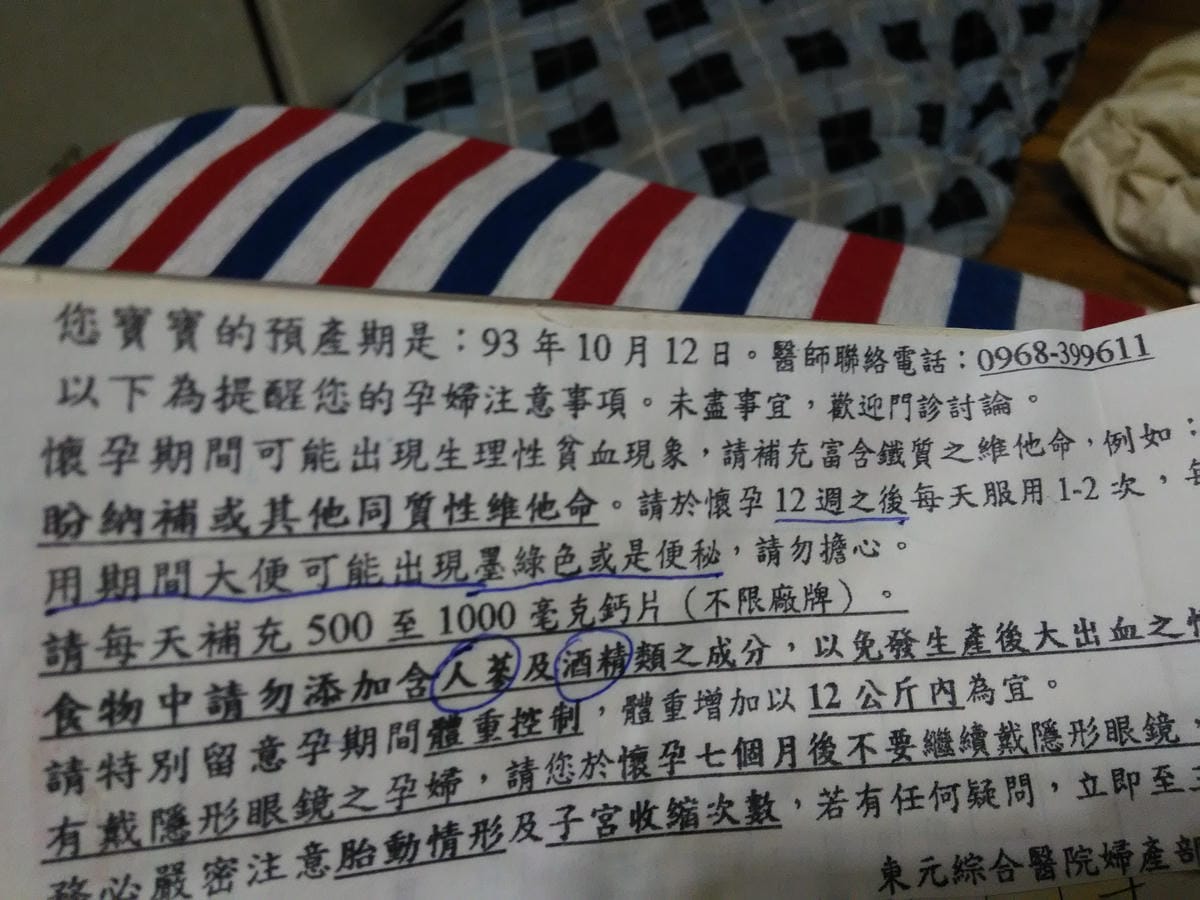 您寶寶的預產期是：93 年 10 月 12 日。醫師聯絡電話：0968-399611
以下為提醒您的孕婦注意事項。未盡事宜，歡迎門診討論。
懷孕期間可能出現生理性貧血現象，請補充富含鐵質之維他命，例如：
盼納補或其他同質性維他命。請於懷孕 12 週之後每天服用 1-2 次，每
用期間大便可能出現墨綠色或是便秘，請勿擔心。
請每天補充 500 至 1000 毫克鈣片（不限廠牌）。
食物中請勿添加含人蔘及酒精類之成分，以免發生產後大出血之情
請特別留意孕期間體重控制，體重增加以 12 公斤內為宜。
有戴隱形眼鏡之孕婦，請您於懷孕七個月後不要繼續戴隱形眼鏡，
務必嚴密注意胎動情形及子宮收縮次數，若有任何疑問，立即至
東元綜合醫院婦產部